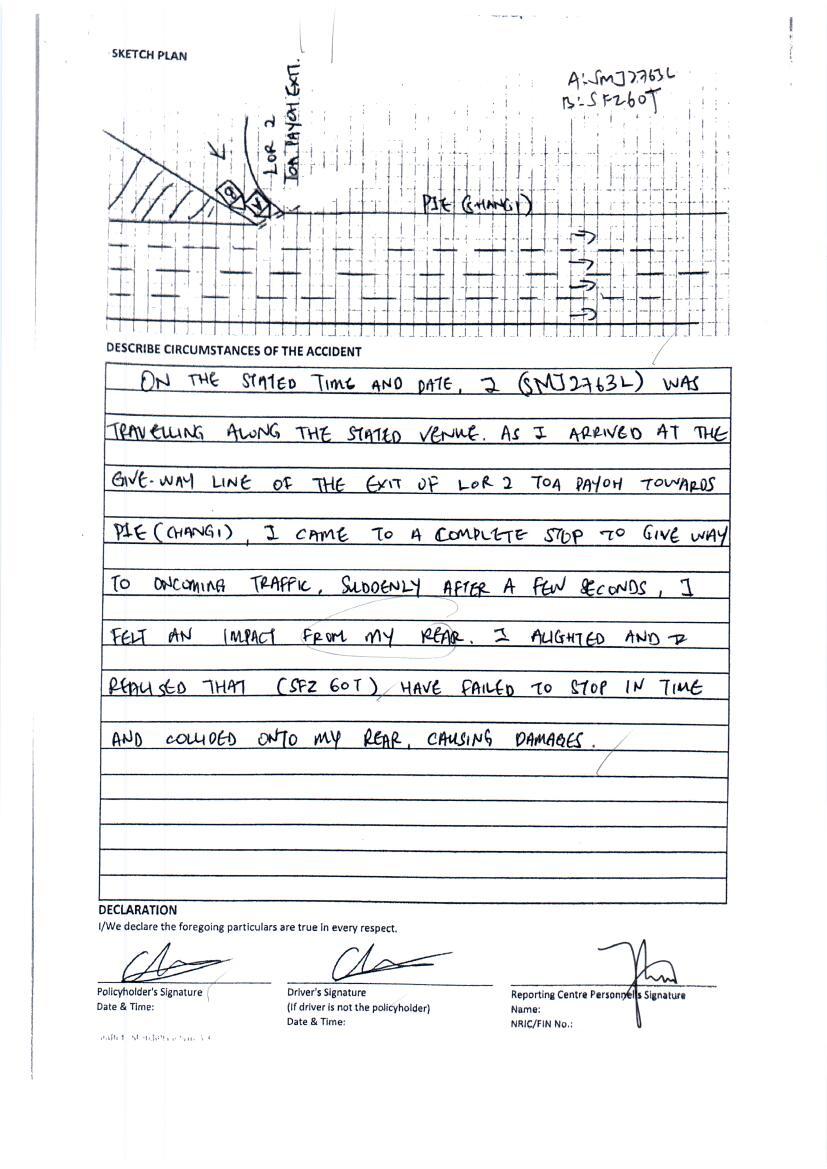 SKETCH PLAN
A:SMJ2763L
B:SFZ60T
LOR 2
TOA PAYOH EXIT.
B
A
PIE (CHANGI)
DESCRIBE CIRCUMSTANCES OF THE ACCIDENT
ON THE STATED TIME AND DATE, I (SMJ2763L) WAS
TRAVELLING ALONG THE STATED VENUE. AS I ARRIVED AT THE
GIVE-WAY LINE OF THE EXIT OF LOR 2 TOA PAYOH TOWARDS
PIE (CHANGI), I CAME TO A COMPLETE STOP TO GIVE WAY
TO ONCOMING TRAFFIC, SUDDENLY AFTER A FEW SECONDS, I
FELT AN IMPACT FROM MY REAR. I ALIGHTED AND
REALISED THAT (SFZ 60T) HAVE FAILED TO STOP IN TIME
AND COLLIDED ONTO MY REAR, CAUSING DAMAGES.
DECLARATION
I/We declare the foregoing particulars are true in every respect.
Policyholder's Signature
Date & Time:
Driver's Signature
(If driver is not the policyholder)
Date & Time:
Reporting Centre Personnel's Signature
Name:
NRIC/FIN No.: